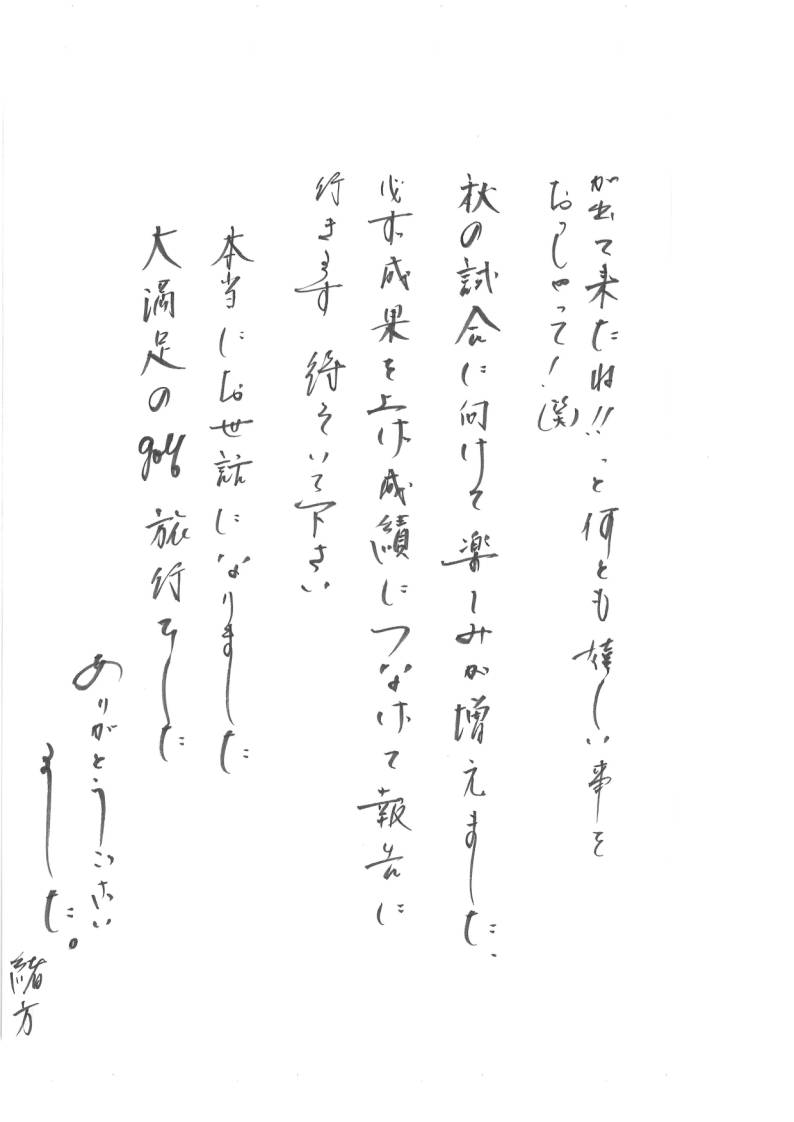 が出て来たね!!っと何とも嬉しい事を
おっしゃって!(笑)
秋の試合に向けて楽しみが増えました、
必ず成果を上げ成績につなげて報告に
行きます 待っていて下さい
本当にお世話になりました
大満足のgolf旅行でした
ありがとうござい
ました。
緒方